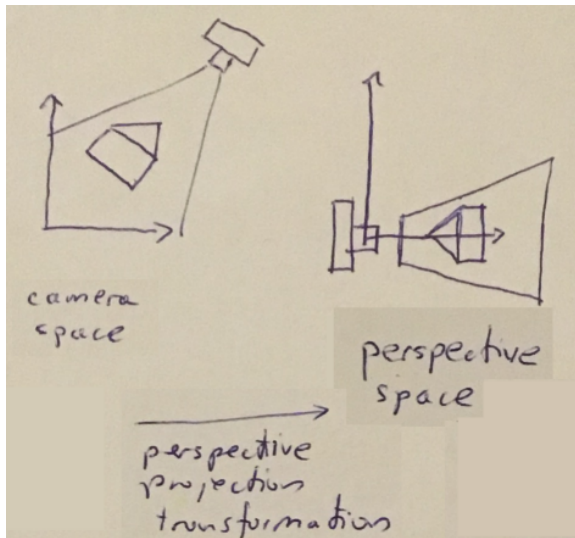 camera
space
perspective
space
perspective
projection
transformation